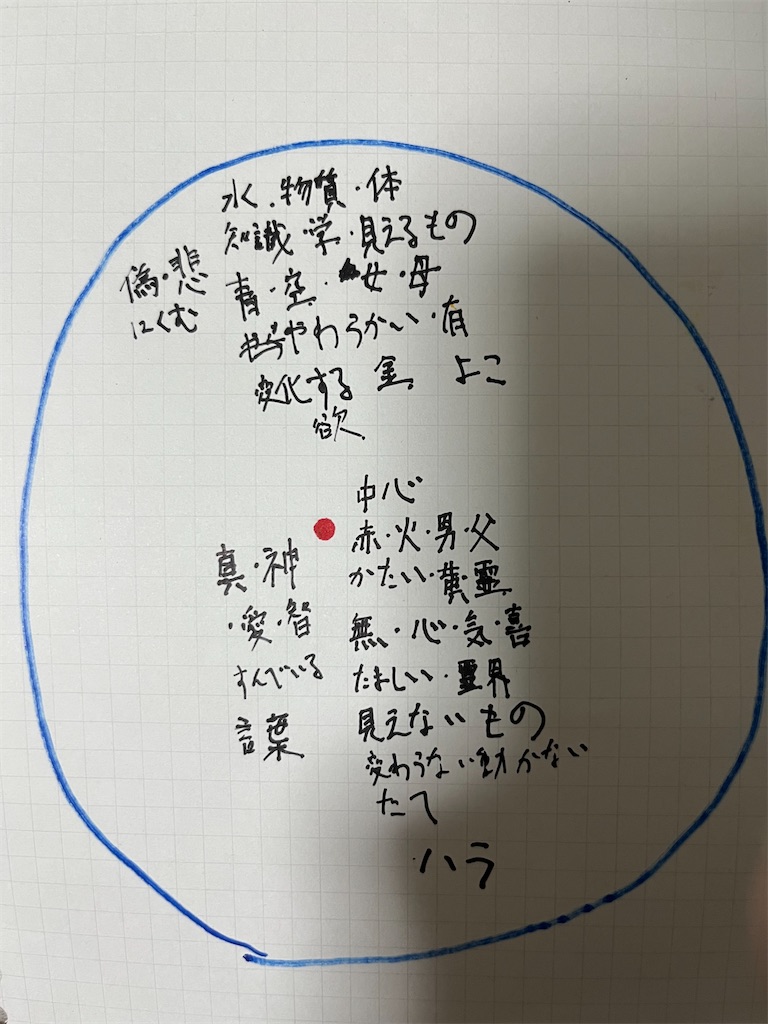 水・物質・体
知識・学・見えるもの
偽・悲
にくむ
青・空・女・母
やわらかい・有
変化する 金 よこ
欲
中心
赤・火・男・父
かたい・黄・霊
真・神
・愛・智
すんでいる
言葉
無・心・気・喜
たましい・霊界
見えないもの
変わらない動かない
たて
ハラ